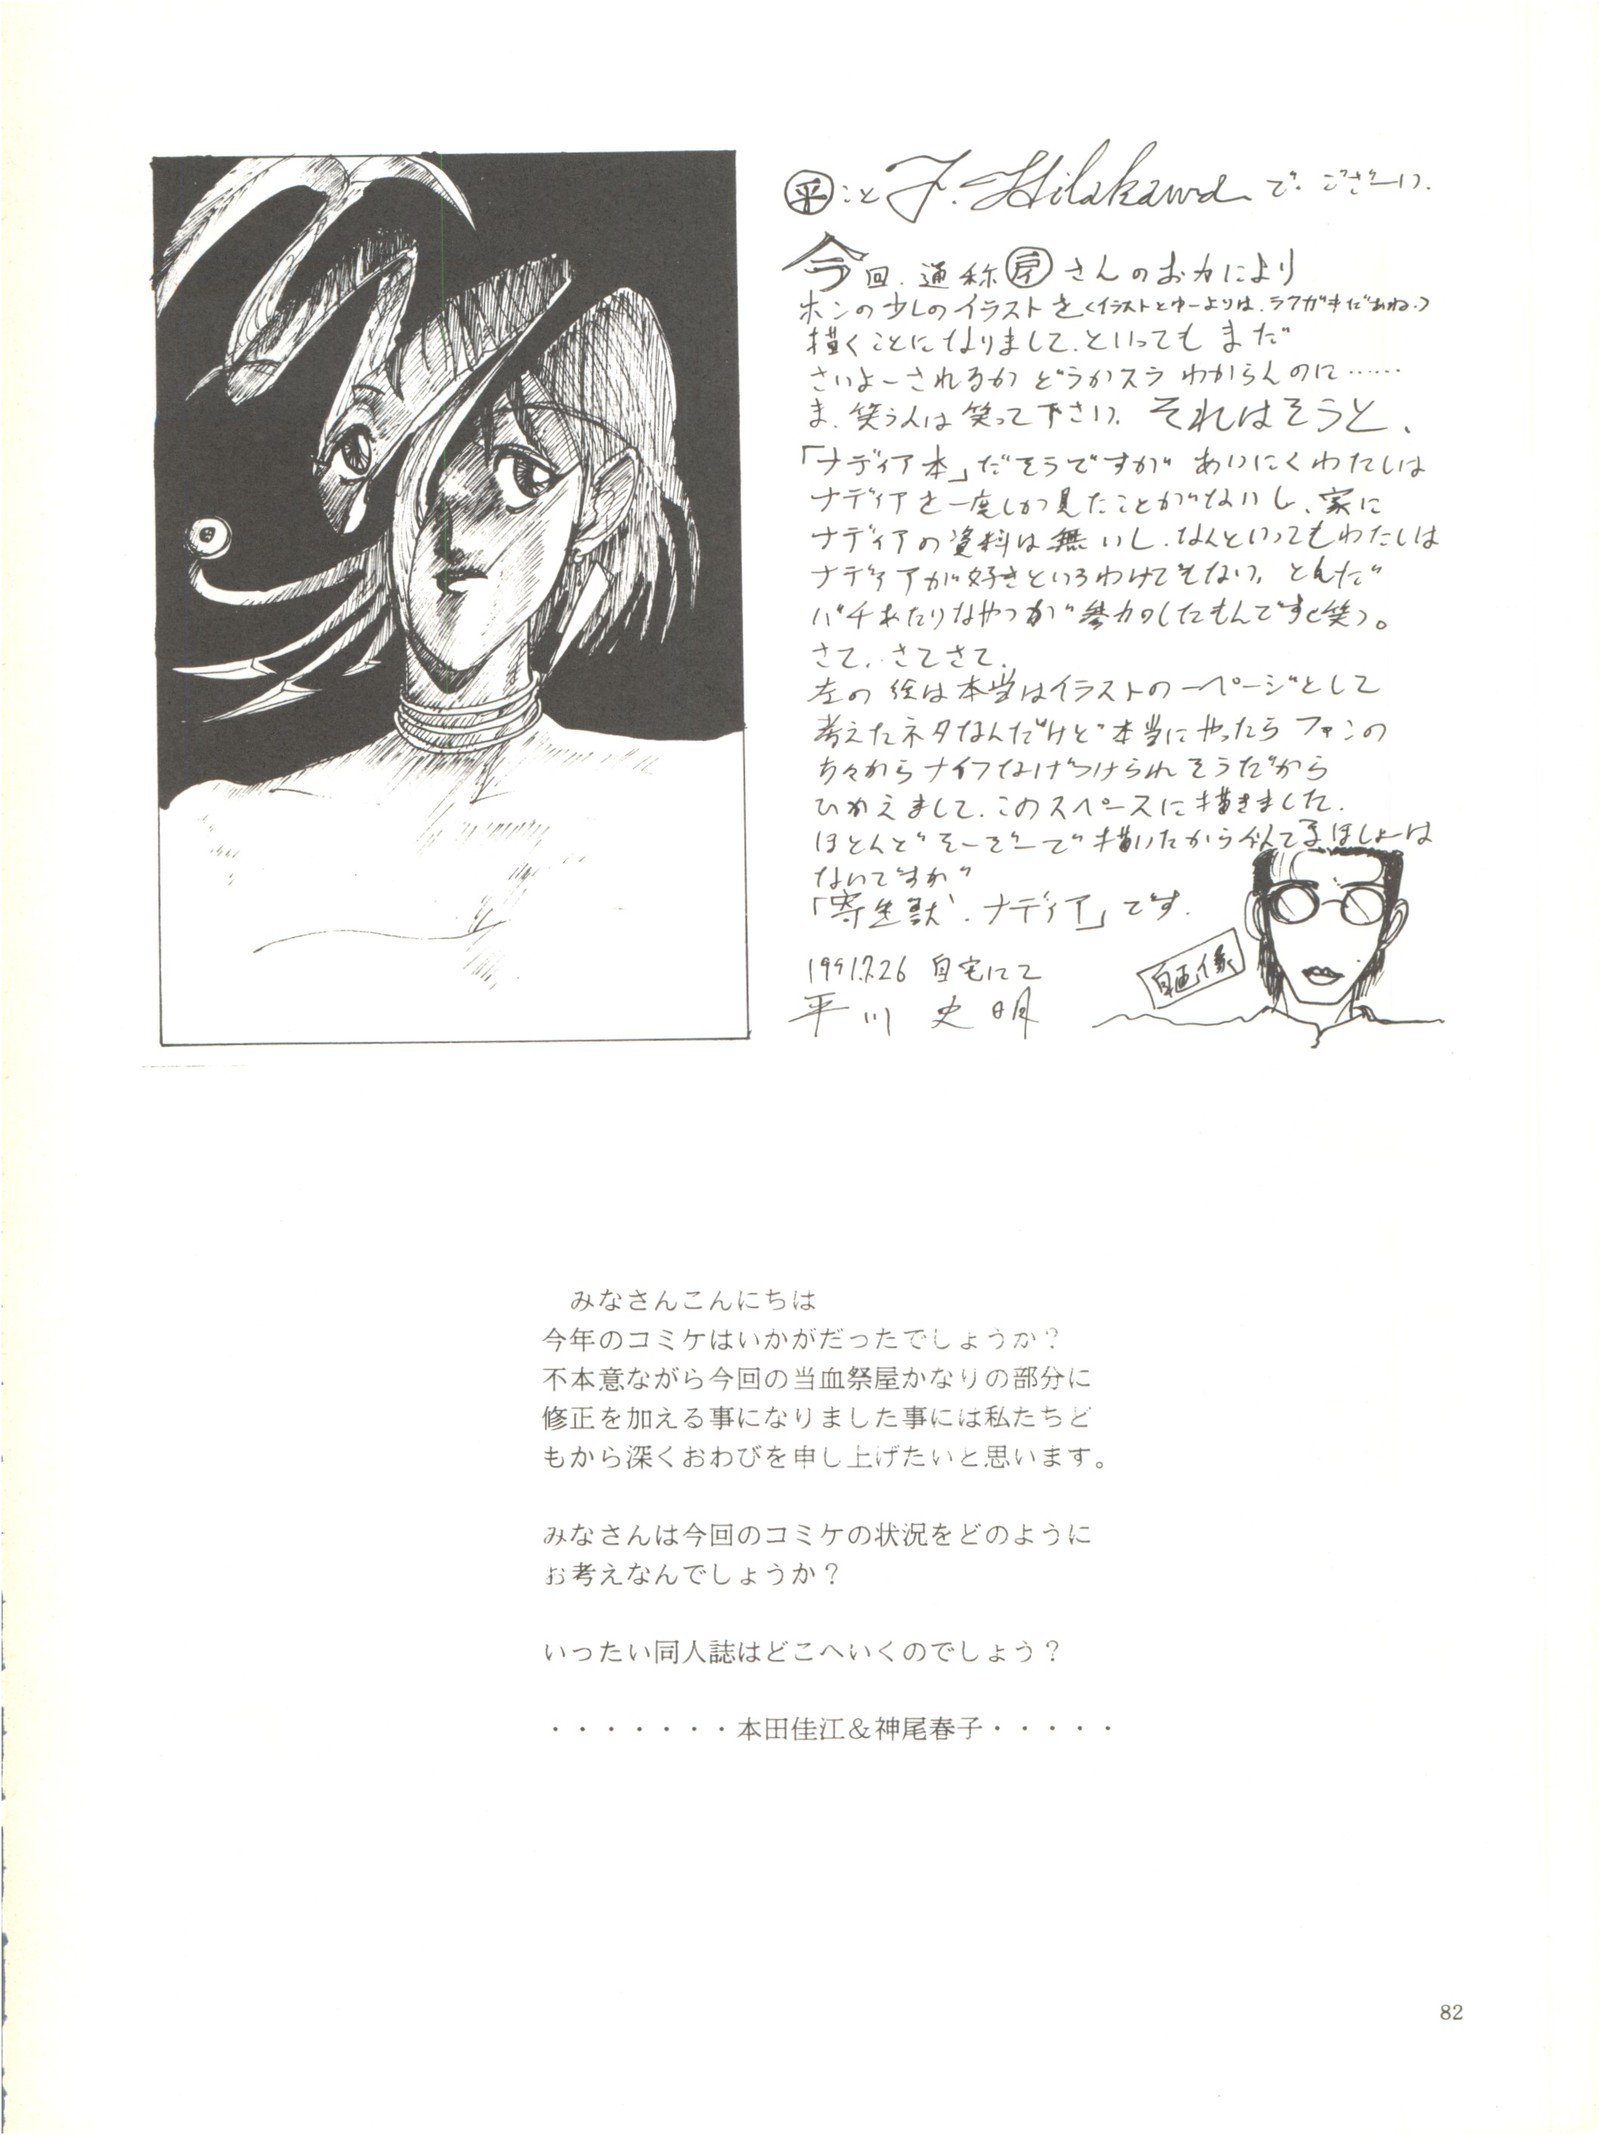 ㊥こと F. Hilakawa でございーい.
今回.通称さんのお力により
ホンの少しのイラストを(イラストとゆーよりは.ラフガキだあね.)
描くことになりまして.といってもまだ
さいよーされるかどうかスラわからんのに……
ま.笑う人は笑って下さい.それはそうと、
「ナディア本」だそうですが あいにくわたしは
ナディアを一度しか見たことがないし、家に
ナディアの資料は無いし.なんといってもわたしは
ナディアが好きというわけでもない.とんだ
バチあたりなやつが参加したもんです(笑)。
さて.さてさて.
左の絵は本当はイラストの一ページとして
考えたネタなんだけど本当にやったらファンの
方々からナイフなげつけられそうだから
ひかえまして.このスペースに描きました.
ほとんどそーぞーで描いたから似てましょーは
ないですが
「寄生獣.ナディア」です.
1991.7.26 自宅にて
平川 史明
自画像
みなさんこんにちは
今年のコミケはいかがだったでしょうか？
不本意ながら今回の当血祭屋かなりの部分に
修正を加える事になりました事には私たちど
もから深くおわびを申し上げたいと思います。
みなさんは今回のコミケの状況をどのように
お考えなんでしょうか？
いったい同人誌はどこへいくのでしょう？
・・・・・・・本田佳江＆神尾春子・・・・・
82